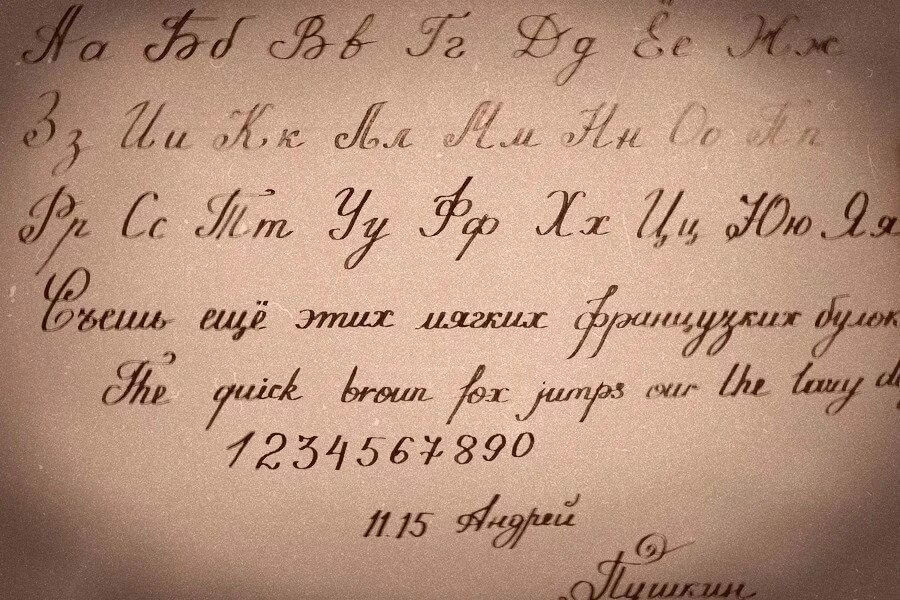 Аа Бб Вв Гг Дд Ёё Жж
Зз Ии Кк Лл Мм Нн Оо Пп
Рр Сс Тт Уу Фф Хх Цц Юю Яя
Съешь ещё этих мягких французких булок
The quick broun fox jumps our the lazy do
1234567890
11.15 Андрей
Пушкин